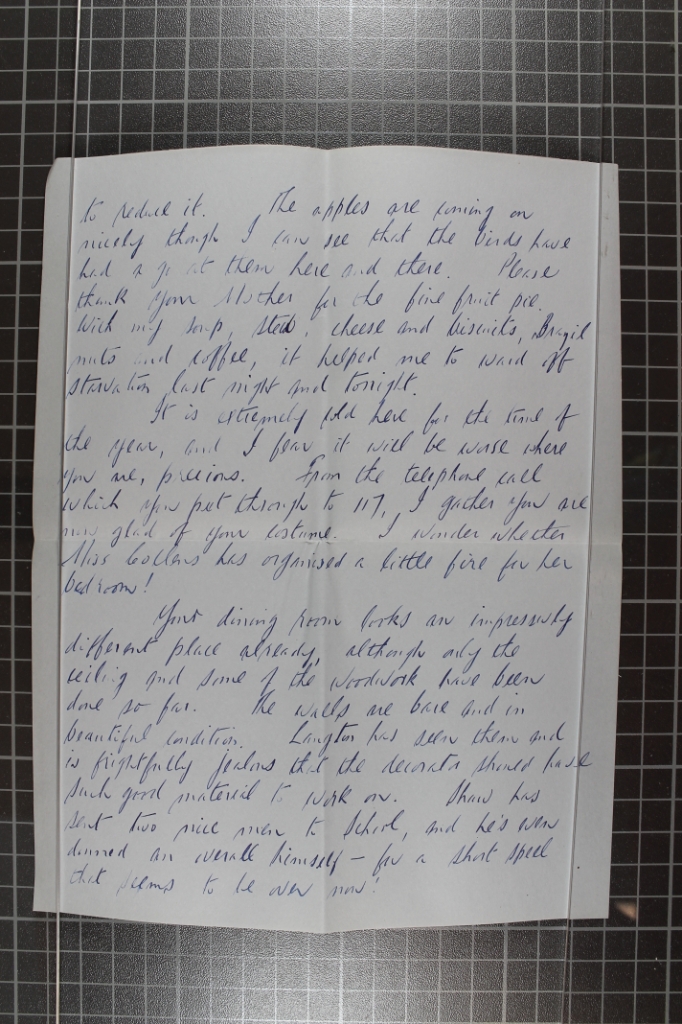 to reduce it. The apples are coming on
nicely though I can see that the birds have
had a go at them here and there. Please
thank your Mother for the fine fruit pie.
With my soup, stew, cheese and biscuits, Brazil
nuts and coffee, it helped me to ward off
starvation last night and tonight.
It is extremely cold here for the time of
the year, and I fear it will be worse where
you are, precious. From the telephone call
which you put through to 117, I gather you are
now glad of your costume. I wonder whether
Miss Collens has organised a little fire for her
bedroom!
Your dining room looks an impressively
different place already, although only the
ceiling and some of the woodwork have been
done so far. The walls are bare and in
beautiful condition. Langton has seen them and
is frightfully jealous that the decorator should have
such good material to work on. Shaw has
sent two nice men to School, and he's even
donned an overall himself – for a short spell
that seems to be over now!